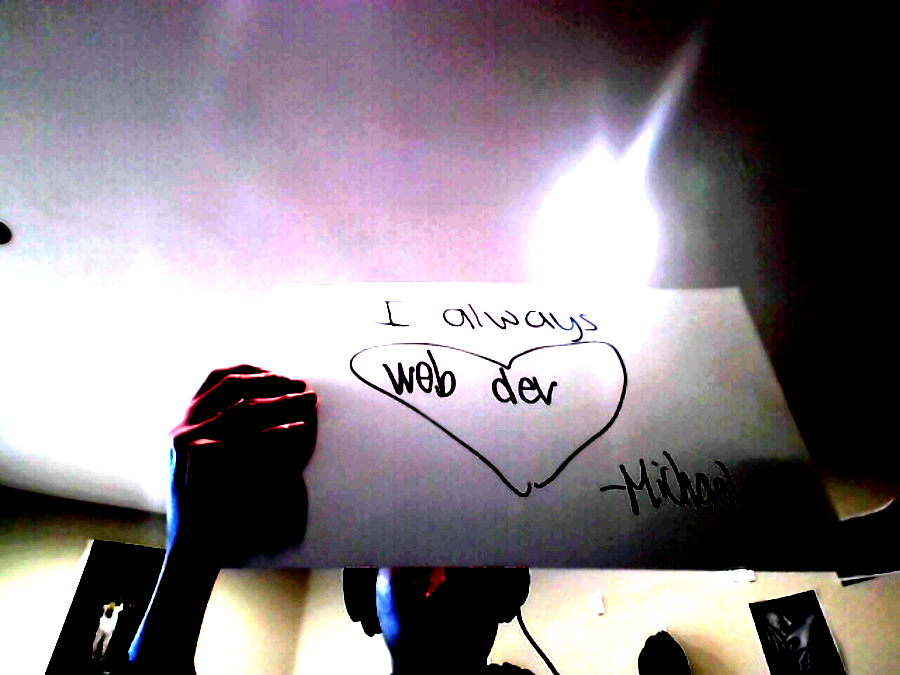 I always
web dev
-Michael